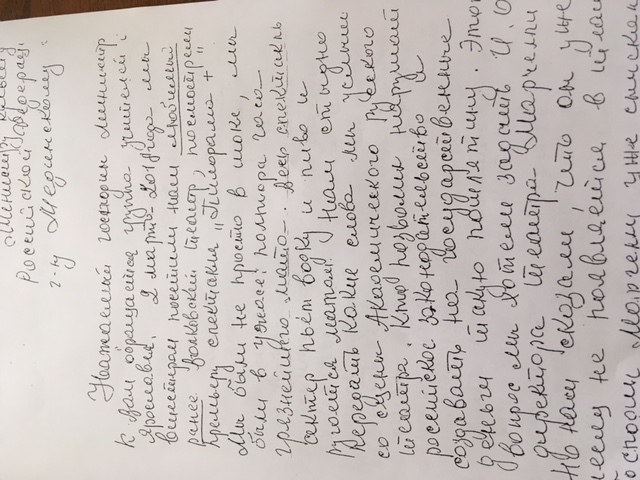 Министру культуры
Российской Федерации
г-ну Мединскому
Уважаемый господин министр
к вам обращается группа учителей г.
Ярославля. 2 марта 2018 года мы
вместе посетили нами любимый
ранее Волковский театр, посмотрели
премьеру спектакля "Палорама +"
Мы были не просто в шоке, мы
были в ужасе! полтора часа
грязнейшего мата. Весь спектакль
актер пьёт водку и пиво и
ругается матом! Нам стыдно
передать какие слова мы услыши
со сцены Академического Русского
театра. Кто позволил нарушать
российское законодательство и
создавать на государственные
деньги такую похабятину. Этот
вопрос мы хотели задать И.О.
директора театра Марчелли
но нам сказали что он уже
не появляется в
Господин Марчелли уже